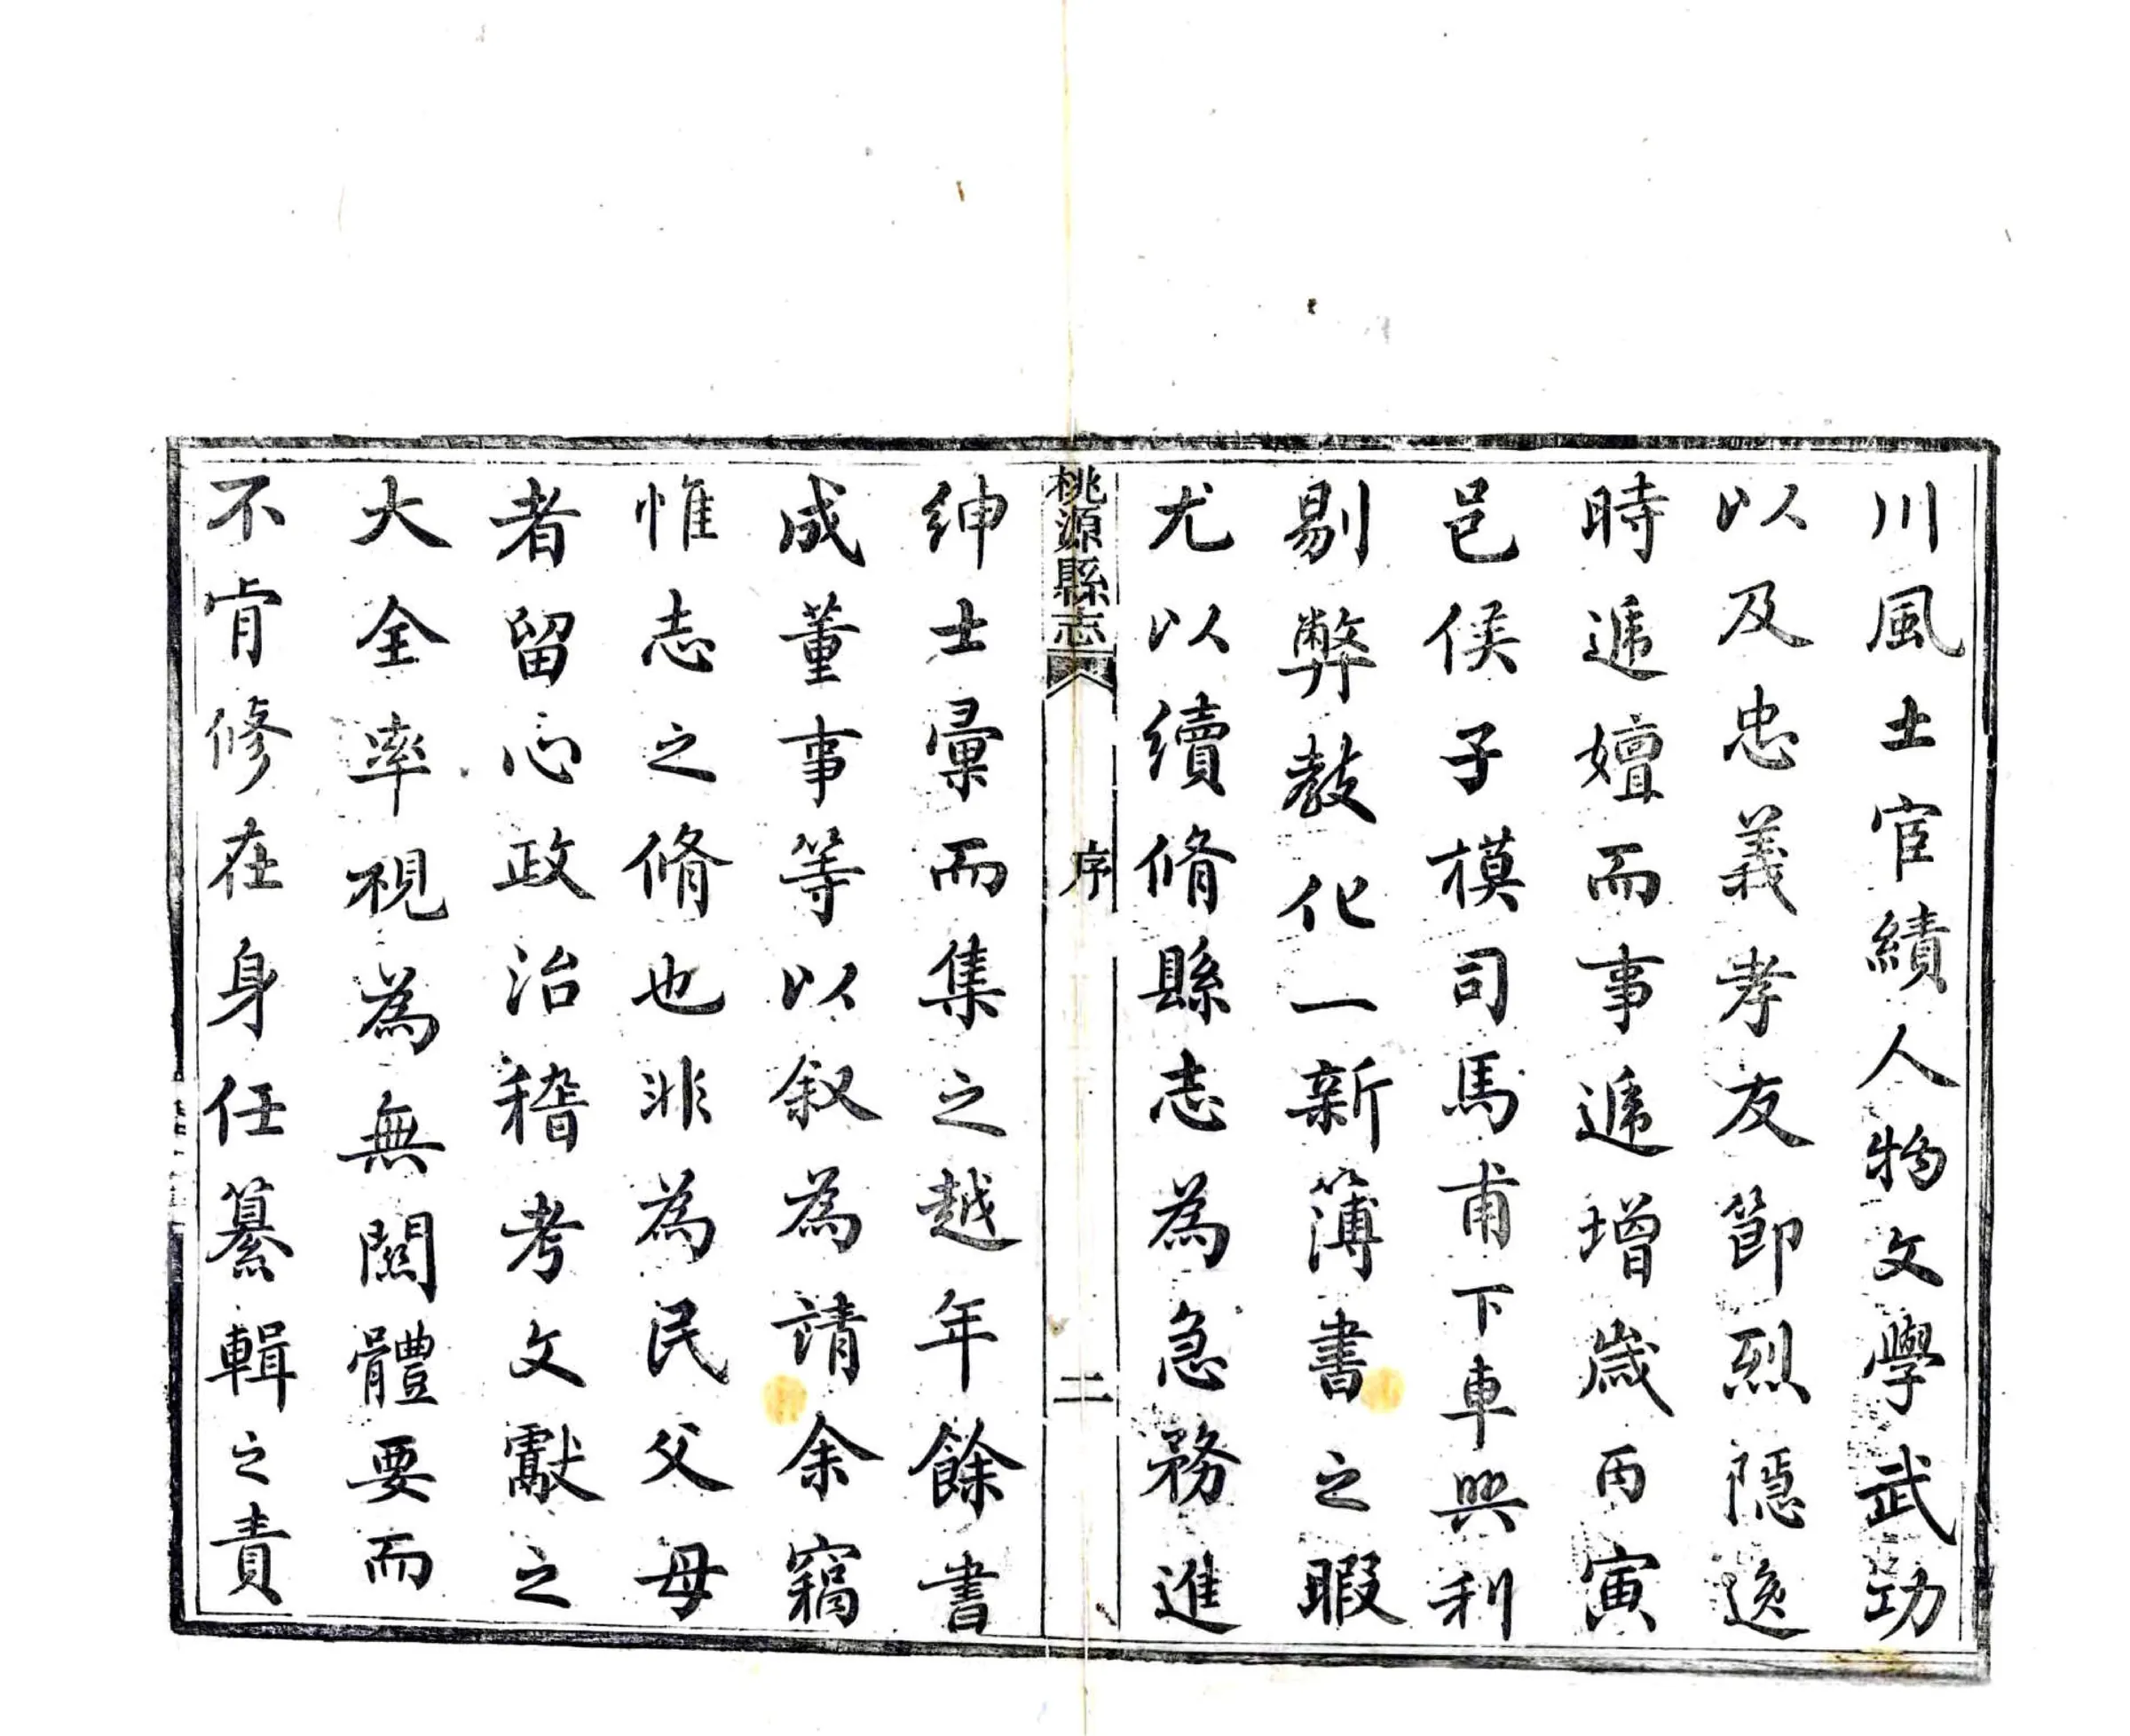 川風土宦績人物文學武功
以及忠義孝友節烈隱逸
時遞嬗而事遞增歲丙寅
邑侯子模司馬甫下車興利
剔弊教化一新簿書之暇
尤以續脩縣志為急務進
桃源縣志 序 二
紳士彙而集之越年餘書
成董事等以叙為請余竊
惟志之脩也非為民父母
者留心政治稽考文獻之
大全率視為無關體要而
不肯修在身任纂輯之責